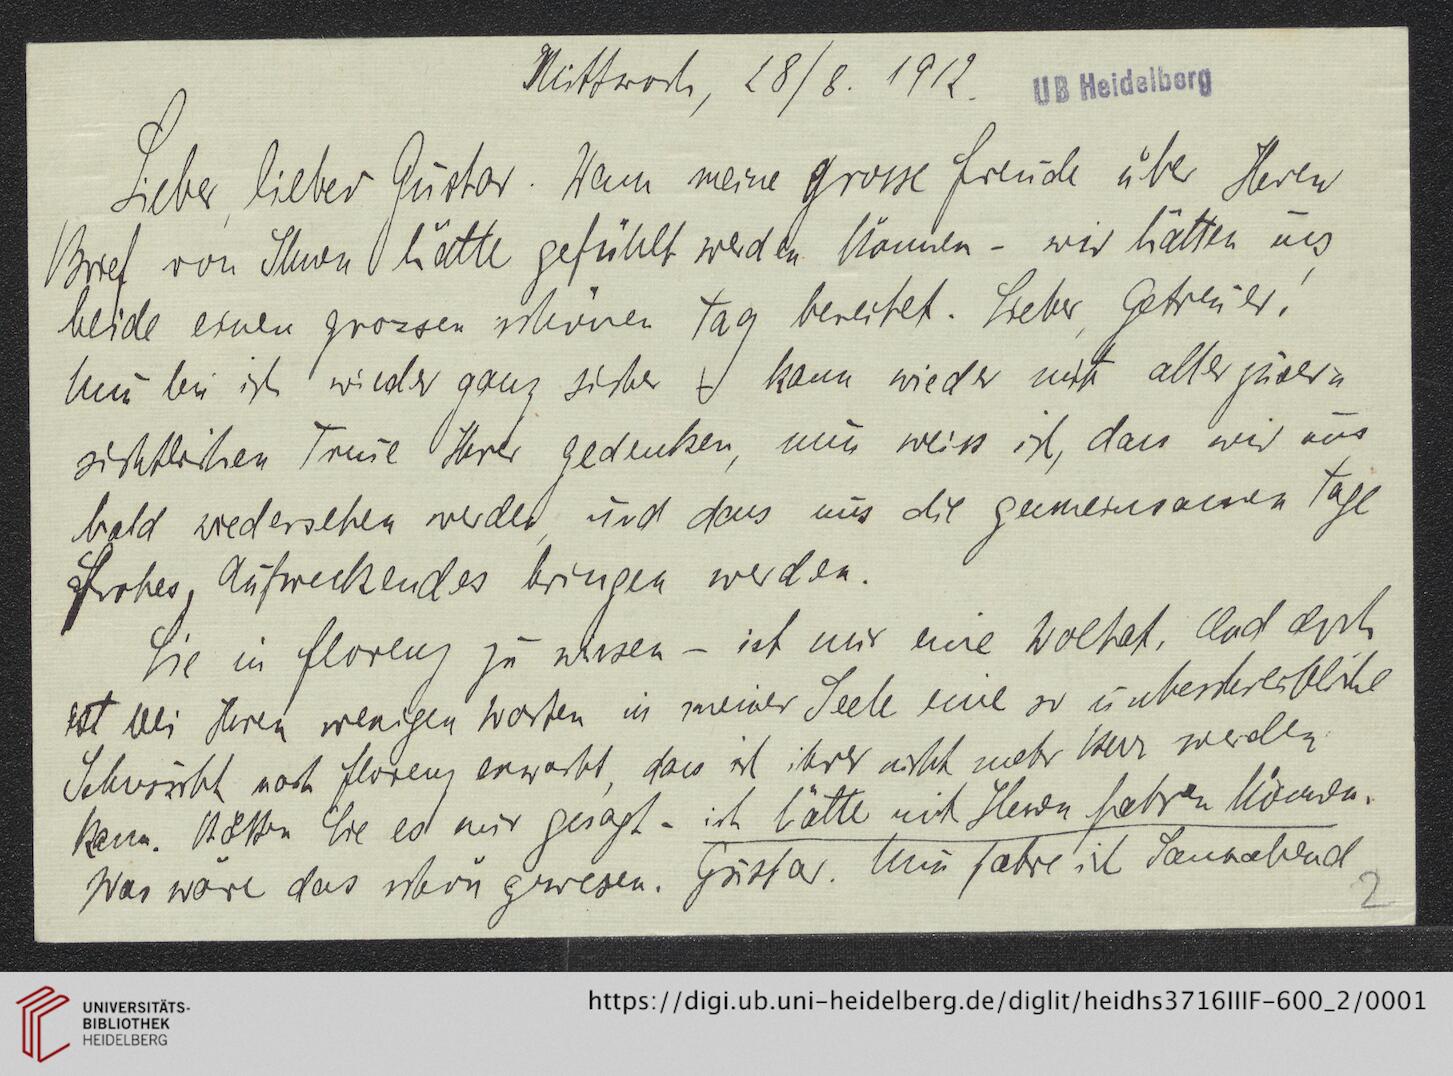 Mittwoch, 28/8. 1912.
UB Heidelberg
Lieber, lieber Gustav. Wenn meine grosse Freude über Ihren
Brief von Ihnen hätte gefühlt werden können – wir hätten uns
beide einen grossen schönen Tag bereitet. Lieber, Getreuer!
Nun bin ich wieder ganz sicher & kann wieder mit aller zuver=
sichtlichen Treue Ihrer gedenken, nun weiss ich, dass wir uns
bald wiedersehen werden und dass uns die gemeinsamen Tage
Frohes, Aufweckendes bringen werden.
Sie in Florenz zu wissen – ist mir eine Woltat. Und doch
ist bei Ihren wenigen Worten in meiner Seele eine so unbeschreibliche
Sehnsucht nach Florenz erwacht, dass ich ihrer nicht mehr Herr werden
kann. Hätten Sie es mir gesagt – ich hätte mit Ihnen fahren können.
Was wäre das schön gewesen. Gustav. Nun fahre ich Sonnabend
2
UNIVERSITÄTS-
BIBLIOTHEK
HEIDELBERG
https://digi.ub.uni-heidelberg.de/diglit/heidhs3716IIIF-600_2/0001